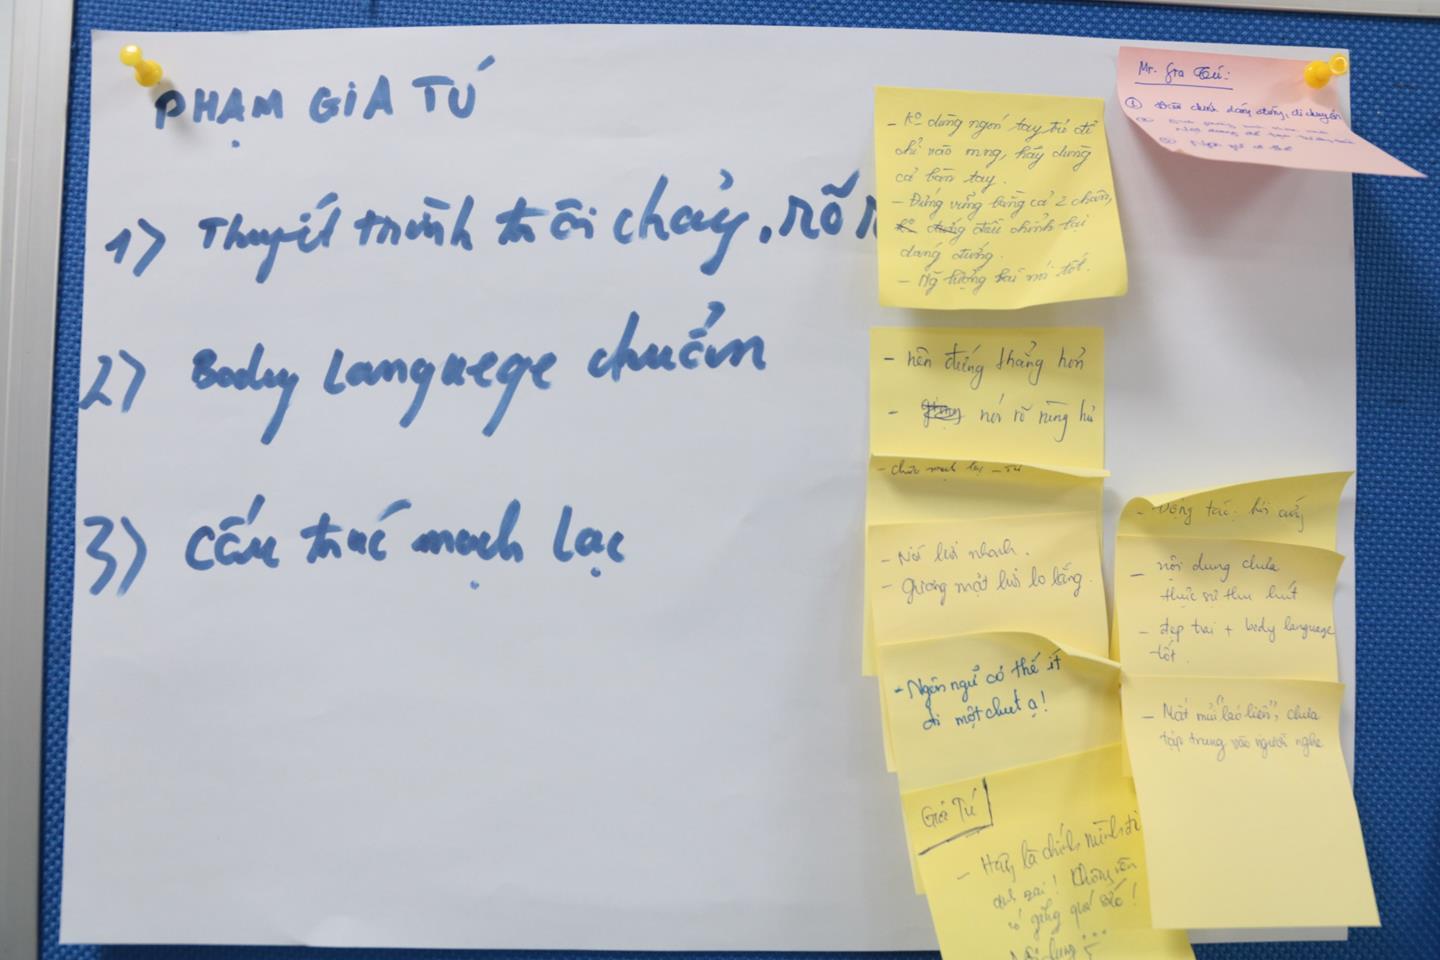 PHẠM GIA TÚ
1) Thuyết trình trôi chảy, rõ r
2) Body Languege chuẩn
3) Cấu trúc mạch lạc
- Ko dùng ngón tay trỏ để
chỉ vào mng, hãy dùng
cả bàn tay.
- Đứng vững bằng cả 2 chân,
điều chỉnh lại
dáng đứng.
- Ng lượng bài nói tốt.
- nên đứng thẳng hơn
- nói rõ ràng hơ
mạch lạc
- Nói hơi nhanh.
- Gương mặt hơi lo lắng.
- Ngôn ngữ có thể ít
đi một chút ạ!
Gia Tú
- Hãy là chính mình đi
anh zai! Không nên
cố gắng quá sức!
Nội dung
Mr. Gia Tú:
① dáng đứng, di chuyển
- Động tác: hơi cứng
- nội dung chưa
thực sự thu hút
- đẹp trai + body language
tốt.
- Mắt mũi "láo liên", chưa
tập trung vào người nghe